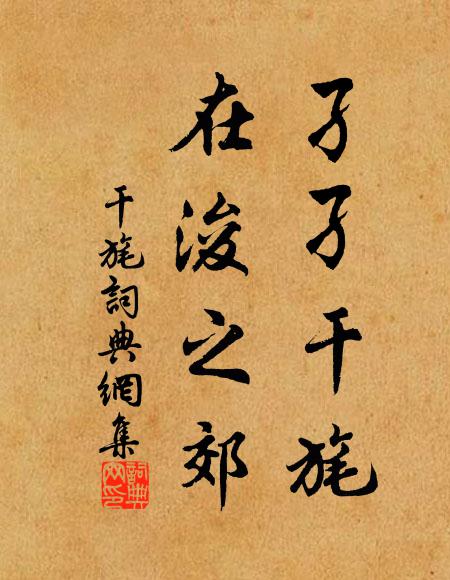 孑孑干旄
在浚之郊
干旄詞典網集